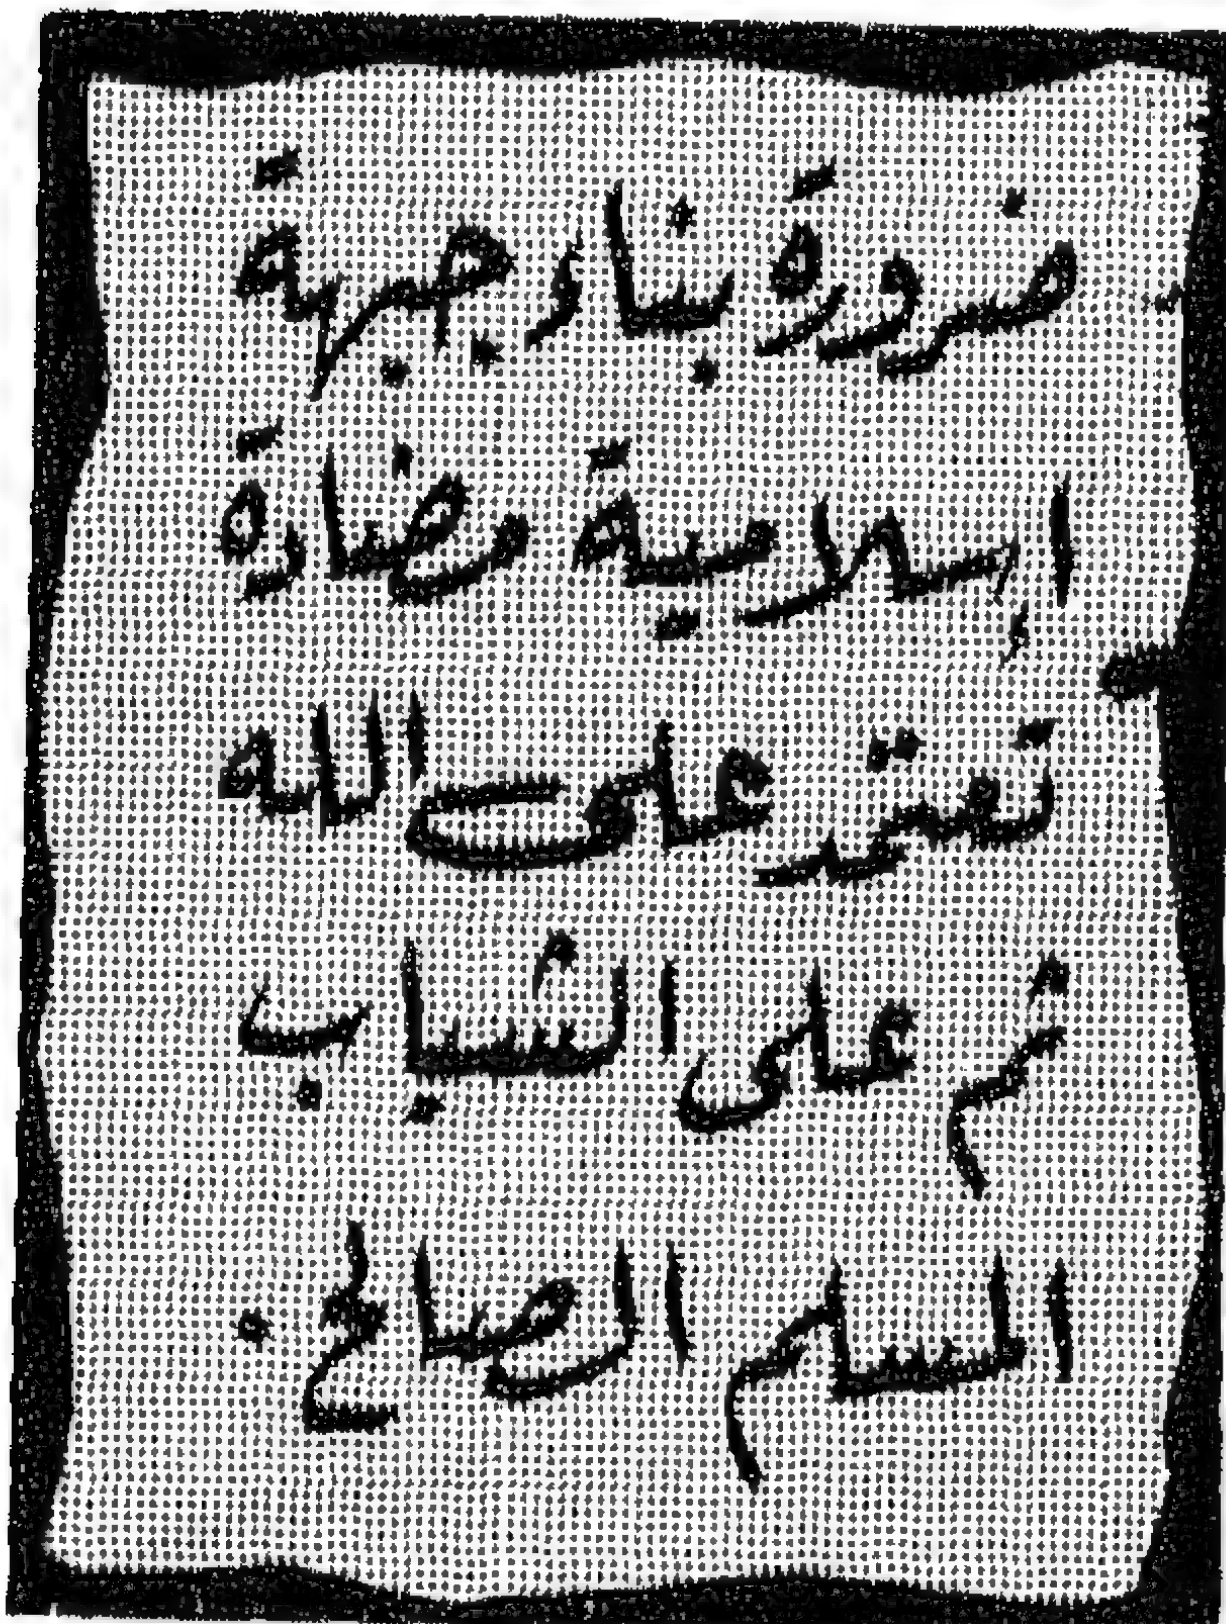 ضرورة بناء جبهة
إسلامية مضادة
تعتمد على الله
ثم على الشباب
المسلم الصالح.